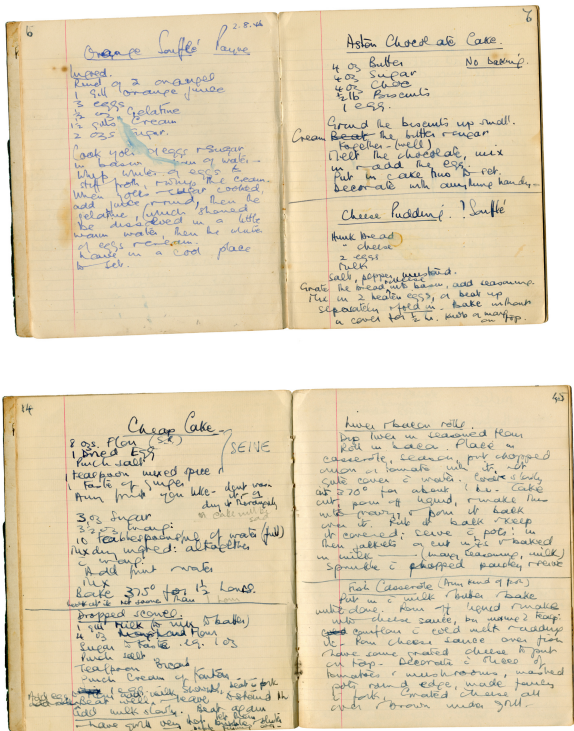 6
2.8.46
Orange Soufflé
Ingred.
Rind of 2 oranges
1 Gill orange juice
3 eggs
½ oz Gelatine
1½ gills Cream
2 ozs Sugar.
Cook yolks of eggs & sugar
in basin over of water
Whip whites of eggs to
stiff froth, & whip the cream.
When yolks & sugar cooked,
add juice & rind, then the
gelatine, which should
be dissolved in a little
warm water, then the whites
of eggs & cream.
Leave in a cool place
to set.
7
Aston Chocolate Cake.
4 oz Butter
No baking.
4 oz Sugar
4 oz Choc
½ lb Biscuits
1 egg.
Grind the biscuits up small.
Cream the butter & sugar
together (well)
Melt the chocolate, mix
in & add the egg.
Put in cake tins to set.
Decorate with anything handy
Cheese Pudding. ? Soufflé
Hunk Bread
" cheese
2 eggs
Milk
Salt, pepper, mustard.
Grate the bread & cheese into basin, add seasoning.
Mix in 2 beaten eggs, or beat up
separately & fold in. Bake without
a cover for ½ hr. Knob of marg
on top.
14
Cheap Cake
8 ozs. Flour (S.R.)
1 Dried Egg
Pinch salt
SEIVE
1 teaspoon mixed spice
Taste of ginger
Any fruit you like -
dry it thoroughly
3 oz Sugar
marg:
10 tablespoonsful of water (full)
Mix dry ingred: altogether
c marg:
Add fruit & water
Mix
Bake 375° for 1½ hours.
Dropped scones.
1 gill Milk to mix (& batter)
4 oz Flour
Sugar to taste eg. 1 oz
Pinch salt
Teaspoon
Pinch Cream of Tartar
egg
Beat well - leave to stand
Add milk slowly. Beat again
45
Liver & bacon rolls.
Dip liver in seasoned flour
Roll in bacon. Place in
casserole, season, put chopped
onion & tomato with it. not
quite cover c water. Cook slowly
at 270° for about 1 hr. Take
out, pour off liquid, & make this
into gravy, & pour it back
over it. Put it back & keep
it covered: serve c pots: in
their jackets or cut & baked
in milk (marg, seasoning, milk)
Sprinkle c chopped parsley & serve
Fish Casserole (Any kind of fish)
Put in c milk & butter & bake
until done. Pour off liquid & make
into cheese sauce, by mixing 2 teasp:
cornflour c cold milk & adding
it. Pour cheese sauce over fish
have some grated cheese to put
on top. Decorate c slices of
tomatoes & mushrooms, mashed
pots round edge, made fancy
c fork. Grated cheese all
over & brown under grill.